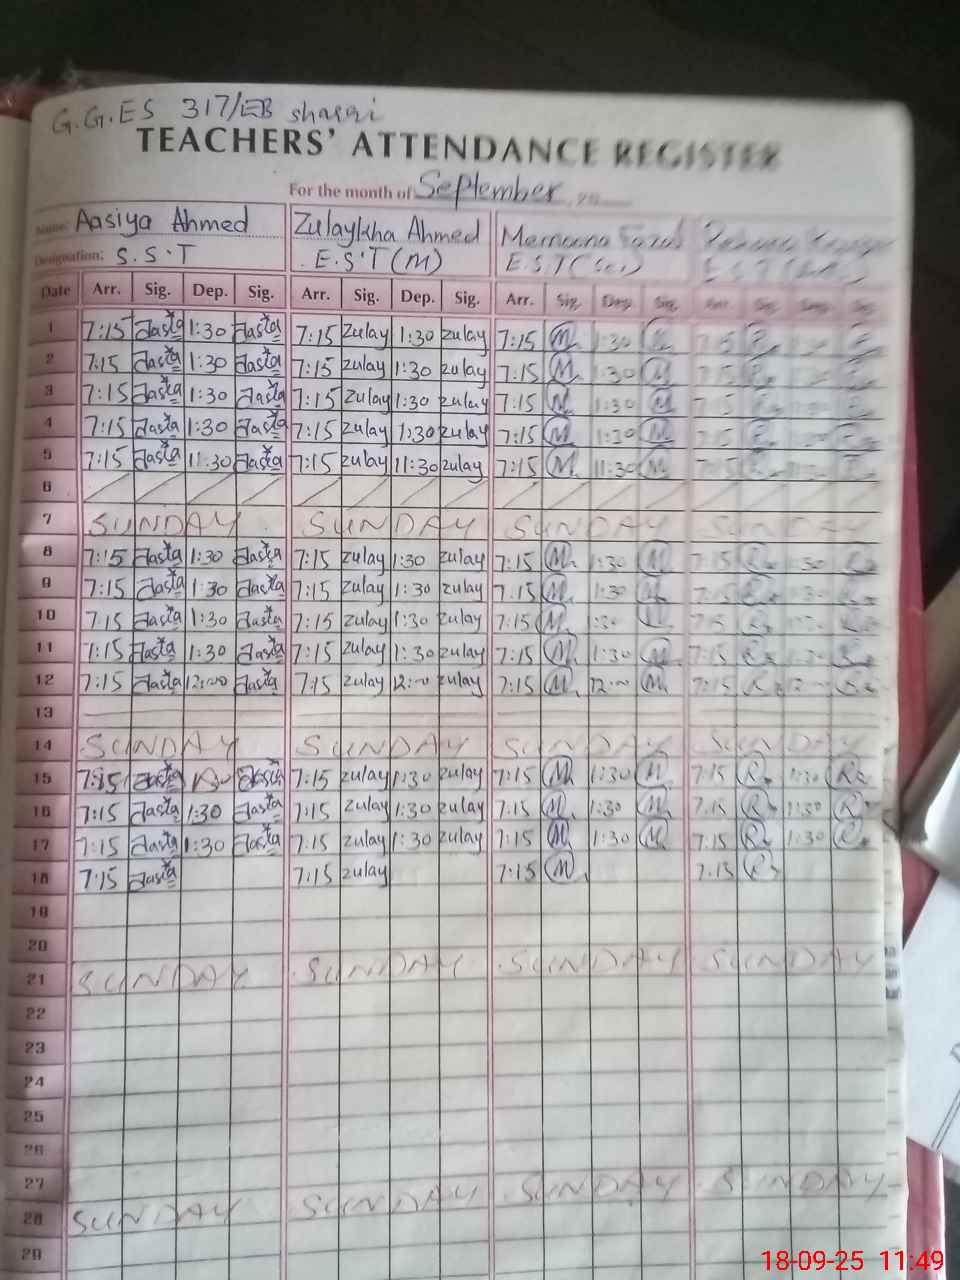 G.G.ES 317/EB sharqi
TEACHERS' ATTENDANCE REGISTER
For the month of September, 20
Name: Aasiya Ahmed Zulaykha Ahmed
Designation: S.S.T E.S.T (M) E.S.T (Sci)
Date Arr. Sig. Dep. Sig. Arr. Sig. Dep. Sig. Arr. Sig. Dep. Sig. Arr. Sig. Dep. Sig.
1 7:15 1:30 7:15 zulay 1:30 zulay 7:15 M 1:30 M 7:15 R 1:30 R
2 7:15 1:30 7:15 zulay 1:30 zulay 7:15 M 1:30 M 7:15 R
3 7:15 1:30 7:15 zulay 1:30 zulay 7:15 M 1:30 M 7:15 R
4 7:15 1:30 7:15 zulay 1:30 zulay 7:15 M 1:30 M 7:15 R
5 7:15 11:30 7:15 zulay 11:30 zulay 7:15 M 11:30 M 7:15 R
6
7 SUNDAY SUNDAY SUNDAY SUNDAY
8 7:15 1:30 7:15 zulay 1:30 zulay 7:15 M 1:30 M 7:15 R 1:30 R
9 7:15 1:30 7:15 zulay 1:30 zulay 7:15 M 1:30 M 7:15 R 1:30 R
10 7:15 1:30 7:15 zulay 1:30 zulay 7:15 M 1:30 M 7:15 R 1:30 R
11 7:15 1:30 7:15 zulay 1:30 zulay 7:15 M 1:30 M 7:15 R 1:30 R
12 7:15 12:00 7:15 zulay 12:00 zulay 7:15 M 12:00 M 7:15 R 12:00 R
13
14 SUNDAY SUNDAY SUNDAY SUNDAY
15 7:15 1:30 7:15 zulay 1:30 zulay 7:15 M 1:30 M 7:15 R 1:30 R
16 7:15 1:30 7:15 zulay 1:30 zulay 7:15 M 1:30 M 7:15 R 1:30 R
17 7:15 1:30 7:15 zulay 1:30 zulay 7:15 M 1:30 M 7:15 R 1:30 R
18 7:15 7:15 zulay 7:15 M 7:15 R
19
20
21 SUNDAY SUNDAY SUNDAY SUNDAY
22
23
24
25
26
27
28 SUNDAY SUNDAY SUNDAY SUNDAY
29
18-09-25 11:49